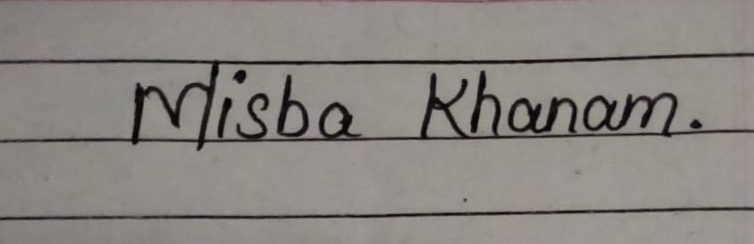 Misba Khanam.